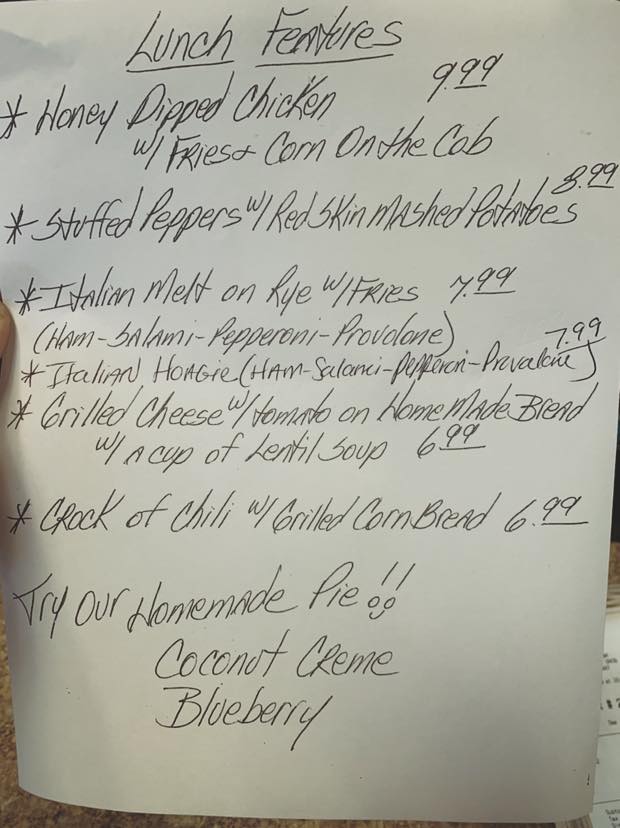 Lunch Features
* Honey Dipped Chicken 9.99
w/ Fries & Corn On the Cob
* Stuffed Peppers w/ Redskin Mashed Potatoes 8.99
* Italian Melt on Rye w/ Fries 7.99
(Ham-Salami-Pepperoni-Provolone)
* Italian Hoagie (Ham-Salami-Pepperoni-Provalone) 7.99
* Grilled Cheese w/ tomato on HomeMade Bread
w/ a cup of Lentil Soup 6.99
* Crock of Chili w/ Grilled Corn Bread 6.99
Try Our Homemade Pie!!
Coconut Creme
Blueberry